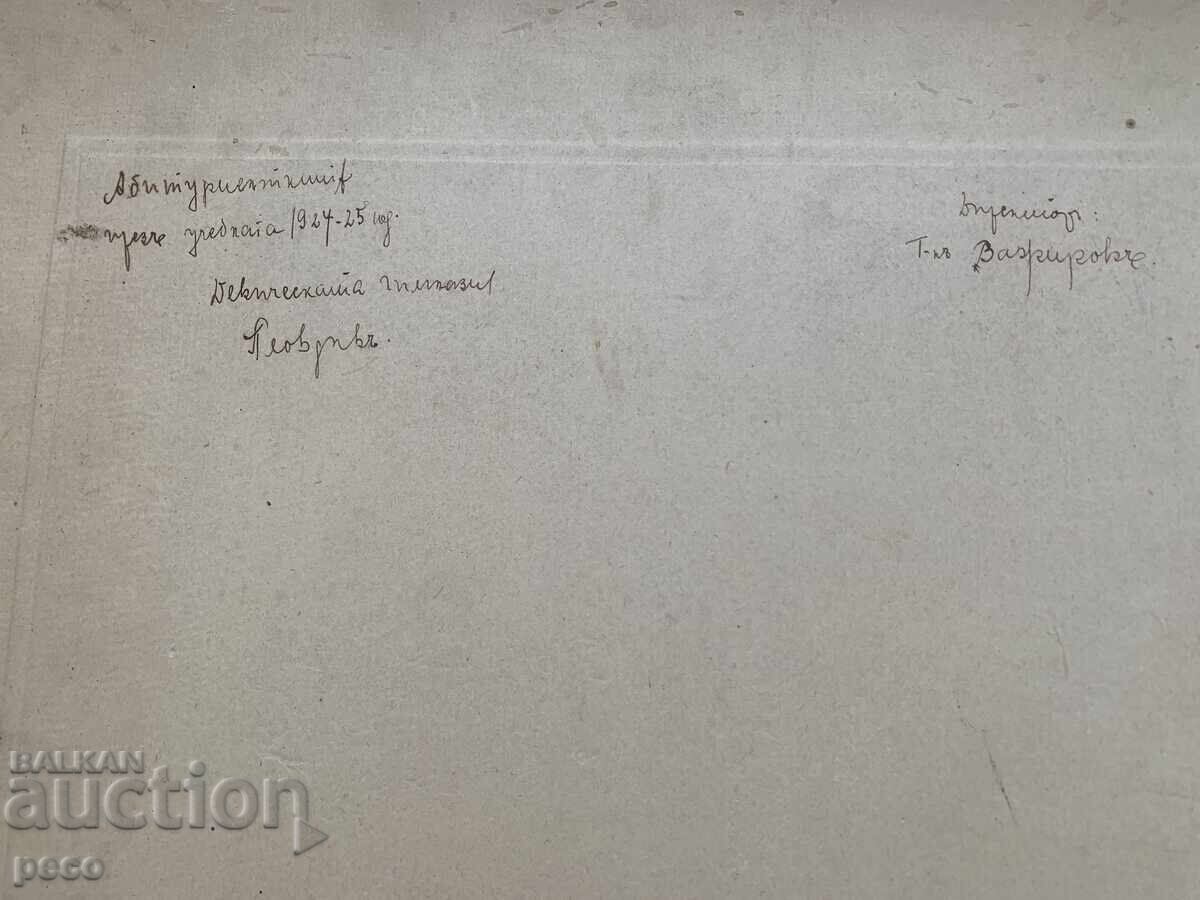 Абитуриенткитѣ
презъ учебната 1924-25 год.
Девическата гимназия
Пловдивъ.
Директоръ:
Г-нъ
BALKAN
auction
peco